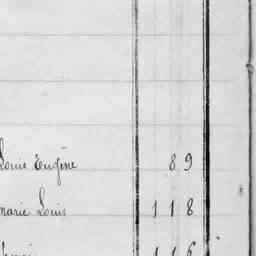 Louis Eugène 89
Marie Louis 118
116